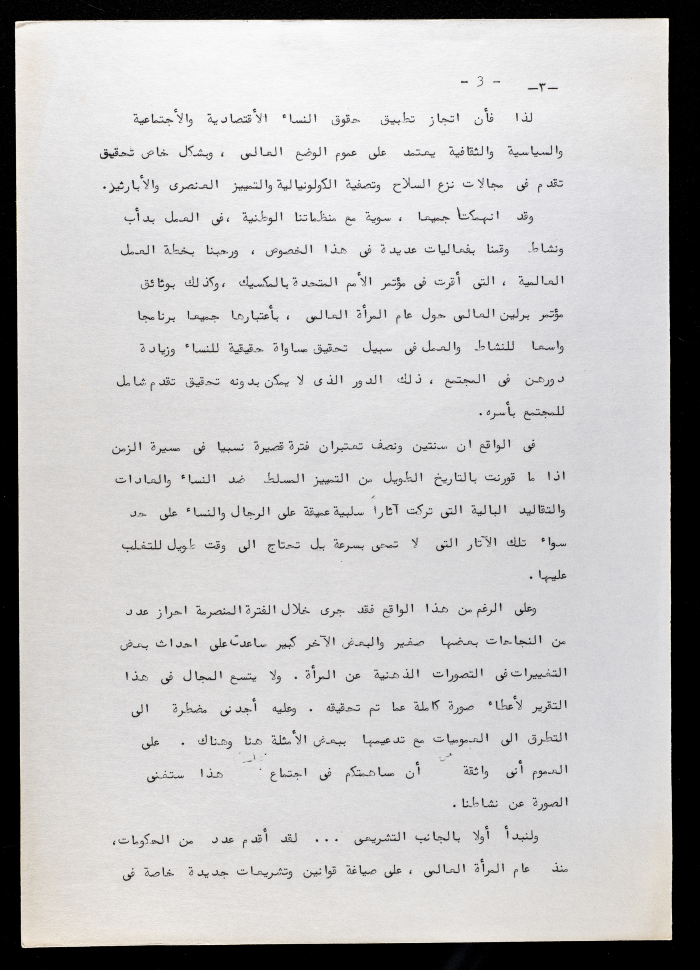 - 3 -   —٣—
لذا فأن انجاز تطبيق حقوق النساء الأقتصادية والأجتماعية
والسياسية والثقافية يعتمد على عموم الوضع العالمى ، وبشكل خاص تحقيق
تقدم فى مجالات نزع السلاح وتصفية الكولونيالية والتمييز العنصرى والأبارثيز.
وقد انهمكنا جميعا ، سوية مع منظماتنا الوطنية ،فى العمل بدأب
ونشاط وقمنا بفعاليات عديدة فى هذا الخصوص ، ورحبنا بخطة العمل
العالمية ، التى أقرت فى مؤتمر الأمم المتحدة بالمكسيك ،وكذلك بوثائق
مؤتمر برلين العالمى حول عام المرأة العالمى ، بأعتبارها جميعا برنامجا
واسعا للنشاط والعمل فى سبيل تحقيق مساواة حقيقية للنساء وزيادة
دورهن فى المجتمع ، ذلك الدور الذى لا يمكن بدونه تحقيق تقدم شامل
للمجتمع بأسره.
فى الواقع ان سنتين ونصف تعتبران فترة قصيرة نسبيا فى مسيرة الزمن
اذا ما قورنت بالتاريخ الطويل من التمييز المسلط ضد النساء والعادات
والتقاليد البالية التى تركت آثارا سلبية عميقة على الرجال والنساء على حد
سواء تلك الآثار التى لا تمحى بسرعة بل تحتاج الى وقت طويل للتغلب
عليها.
وعلى الرغم من هذا الواقع فقد جرى خلال الفترة المنصرمة احراز عدد
من النجاحات بعضها صغير والبعض الآخر كبير ساعدت على احداث بعض
التغييرات فى التصورات الذهنية عن المرأة . ولا يتسع المجال فى هذا
التقرير لأعطاء صورة كاملة عما تم تحقيقه . وعليه أجدنى مضطرة الى
التطرق الى العموميات مع تدعيمها ببعض الأمثلة هنا وهناك . على
العموم أنى واثقة من أن مساهمتكم فى اجتماع هذا ستغنى
الصورة عن نشاطنا.
ولنبدأ أولا بالجانب التشريعى ... لقد أقدم عدد من الحكومات،
منذ عام المرأة العالمى ، على صياغة قوانين وتشريعات جديدة خاصة فى